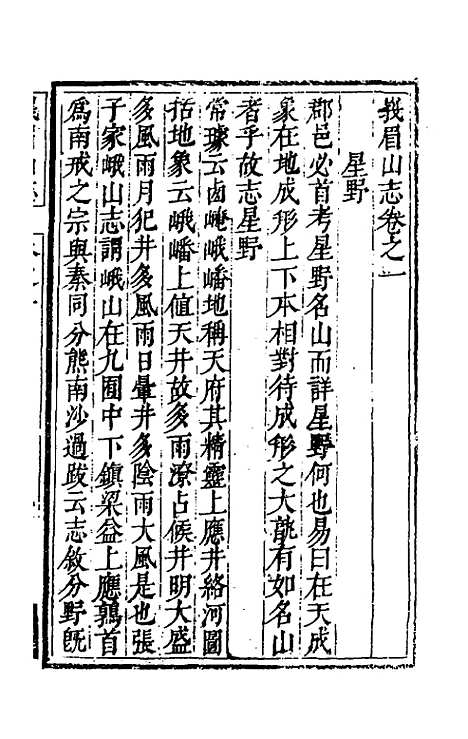 峩眉山志卷之一
星野
郡邑必首考星野名山而詳星野何也易曰在天成
象在地成形上下本相對待成形之大孰有如名山
者乎故志星野
常璩云岷嶓地稱天府其精靈上應井絡河圖
括地象云岷嶓上値天井故多雨潦占候井明大盛
多風雨月犯井多風雨日暈井多陰雨大風是也張
子家峨山志謂峨山在九囿中下鎮梁益上應鶉首
爲南戒之宗與秦同分熊南沙過跋云志敘分野旣